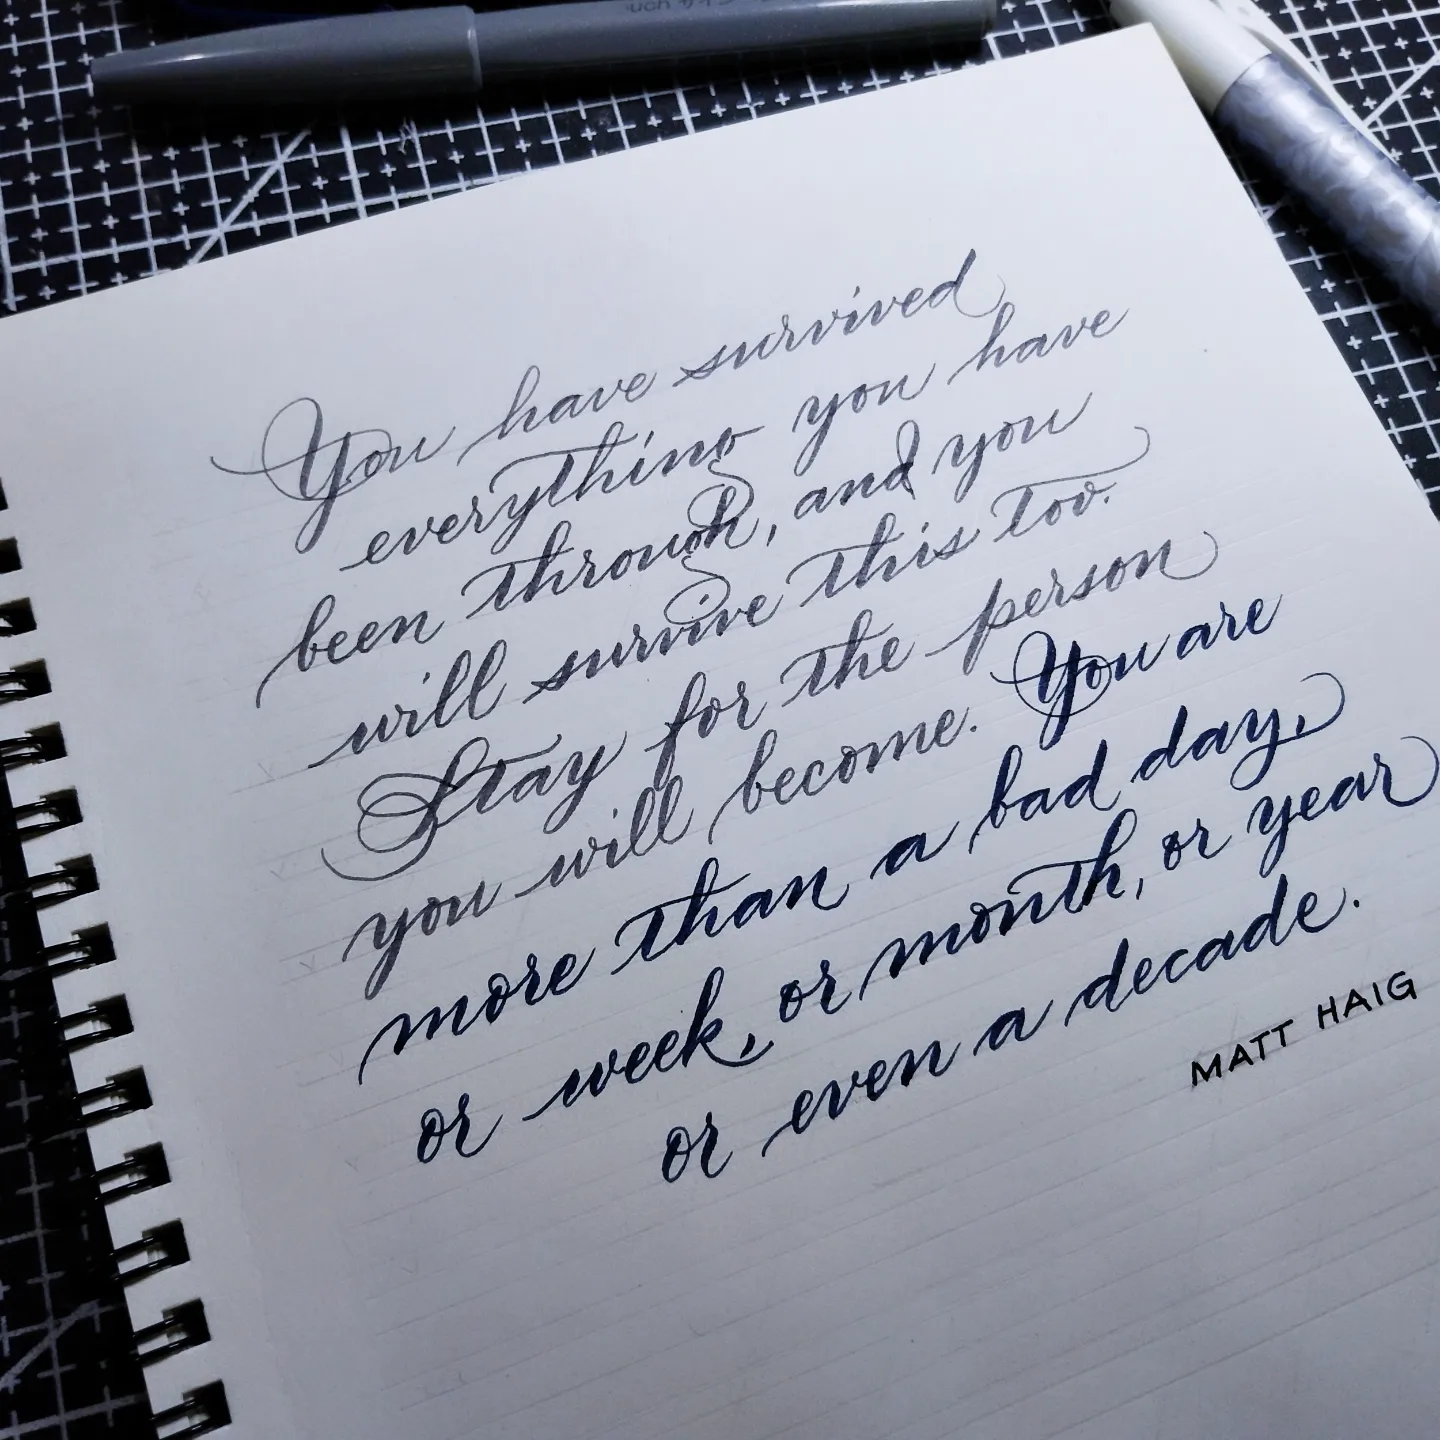 You have survived
everything you have
been through, and you
will survive this too.
Stay for the person
you will become. You are
more than a bad day,
or week, or month, or year
or even a decade.
MATT HAIG